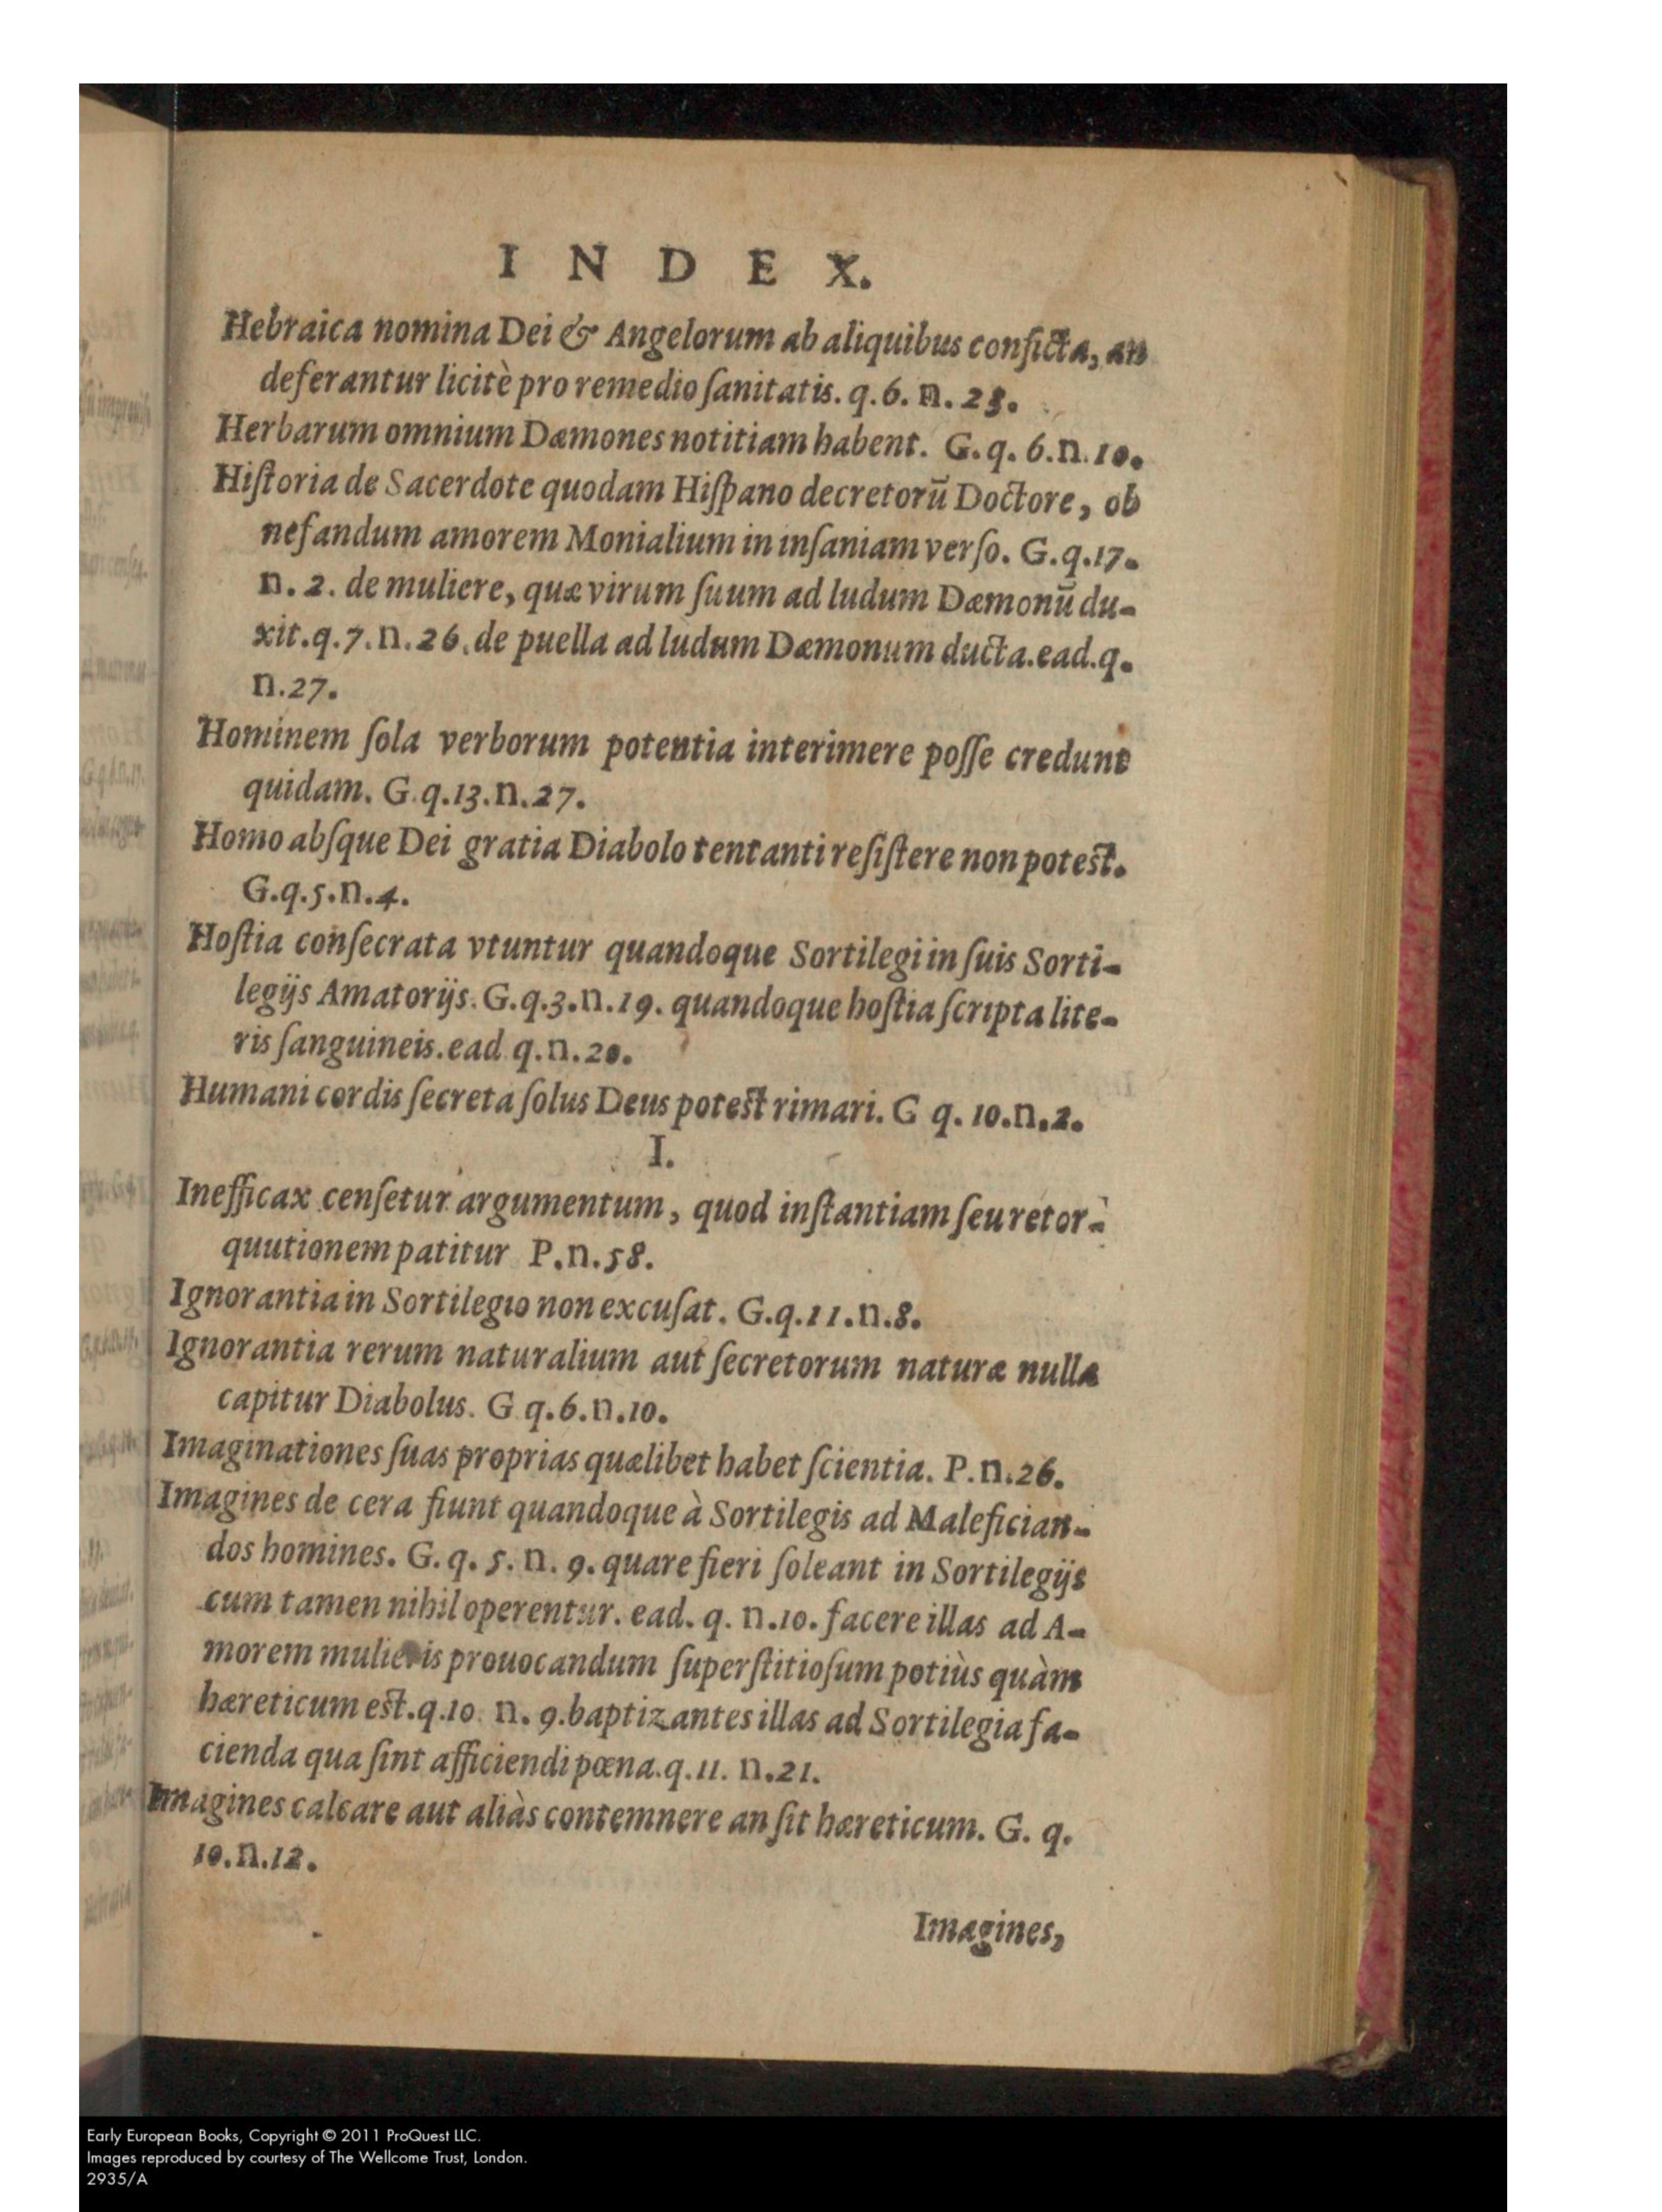 I N D E X.
Hebraica nomina Dei & Angelorum ab aliquibus conficta, an
deferantur licitè pro remedio ſanitatis. q.6. n. 23.
Herbarum omnium Dæmones notitiam habent. G. q. 6.n.10.
Hiſtoria de Sacerdote quodam Hiſpano decretorū Doctore, ob
nefandum amorem Monialium in inſaniam verſo. G.q.17.
n. 2. de muliere, quæ virum ſuum ad ludum Dæmonū du-
xit.q.7.n.26.de puella ad ludum Dæmonum ducta.ead.q.
n.27.
Hominem ſola verborum potentia interimere poſſe credunt
quidam. G.q.13.n.27.
Homo abſque Dei gratia Diabolo tentanti reſiſtere non poteſt.
G.q.5.n.4.
Hoſtia conſecrata vtuntur quandoque Sortilegi in ſuis Sorti-
legijs Amatorijs. G.q.3.n.19. quandoque hoſtia ſcripta lite-
ris ſanguineis.ead q.n.20.
Humani cordis ſecreta ſolus Deus poteſt rimari. G q. 10.n.2.
I.
Inefficax cenſetur argumentum, quod inſtantiam ſeu retor-
quutionem patitur P.n.58.
Ignorantia in Sortilegio non excuſat. G.q.11.n.8.
Ignorantia rerum naturalium aut ſecretorum naturæ nulla
capitur Diabolus. G q.6.n.10.
Imaginationes ſuas proprias quælibet habet ſcientia. P.n.26.
Imagines de cera fiunt quandoque à Sortilegis ad Malefician-
dos homines. G. q. 5. n. 9. quare fieri ſoleant in Sortilegijs
cum tamen nihil operentur. ead. q. n.10. facere illas ad A-
morem mulieris prouocandum ſuperſtitioſum potiùs quàm
hæreticum eſt.q.10. n. 9.baptizantes illas ad Sortilegia fa-
cienda qua ſint afficiendi pœna.q.11. n.21.
Imagines calcare aut aliàs contemnere an ſit hæreticum. G. q.
10.n.12.
Imagines,
Early European Books, Copyright © 2011 ProQuest LLC.
Images reproduced by courtesy of The Wellcome Trust, London.
2935/A